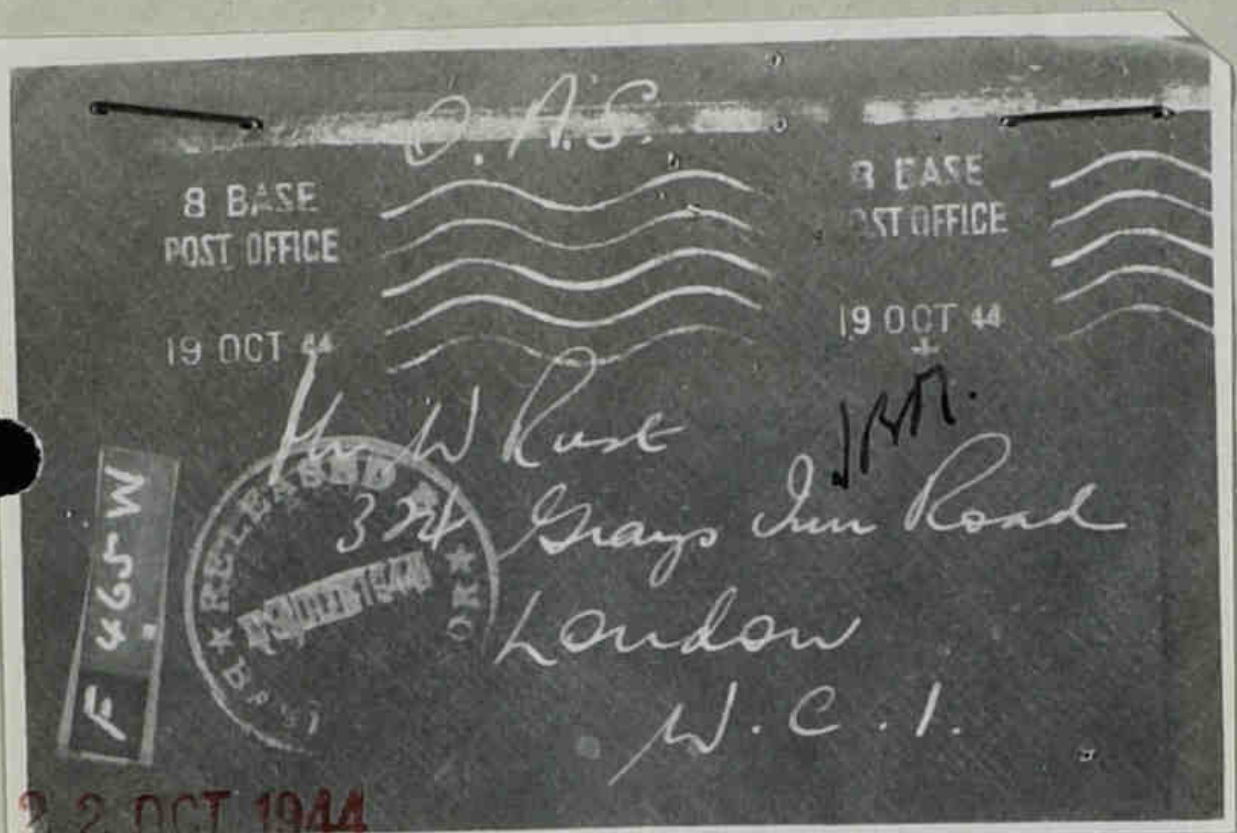 O.A.S.
8 BASE
POST OFFICE
19 OCT 44
8 BASE
OST OFFICE
19 OCT 44
Mr W Rust
324 Grays Inn Road
London
W.C.1.
RELEASED
1944
F 465 W
22 OCT 1944